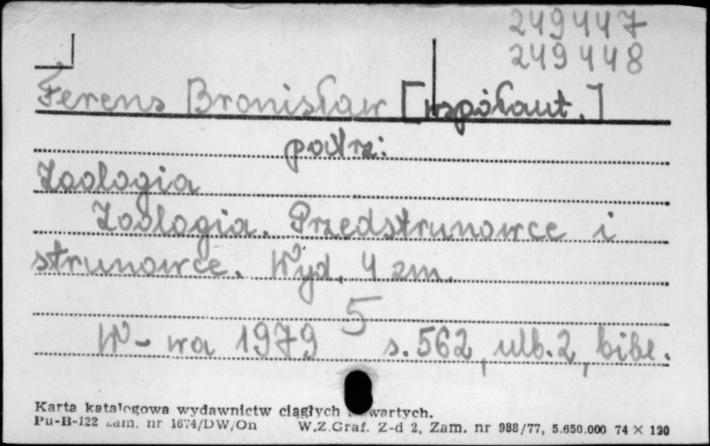 249447
249448
Ferens Bronisław [współaut.]
patrz:
Zoologia
Zoologia. Przedstrunowce i
strunowce. Wyd. 4 zm.
5
W-wa 1979 s. 562, ulb. 2, bibl.
Karta katalogowa wydawnictw ciągłych i zwartych.
Pu-B-122 zam. nr 1674/DW/On W.Z.Graf. Z-d 2, Zam. nr 988/77, 5.650.000 74 × 120